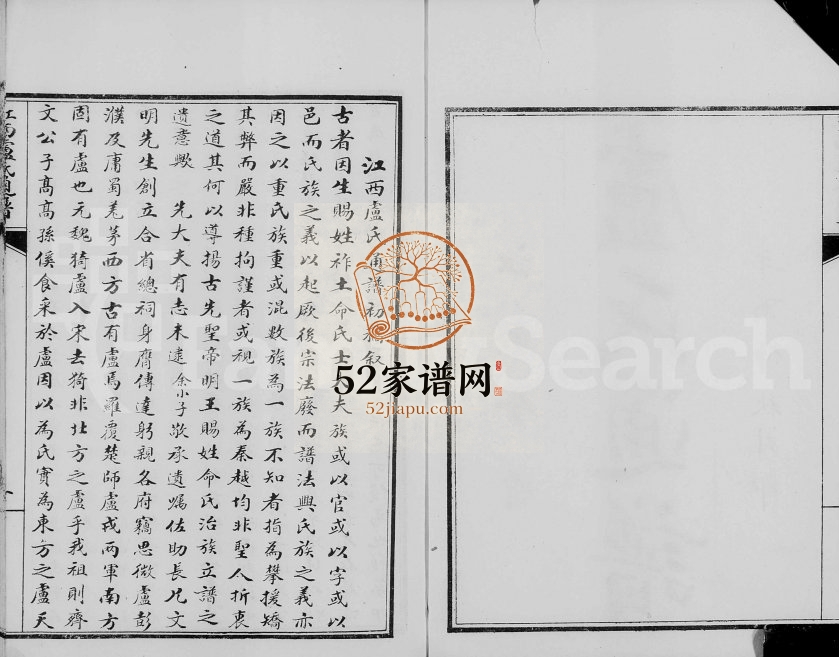 江西盧氏通譜初稿叙
古者因生賜姓祚土命氏士大夫族或以官或以字或以
邑而氏族之義以起厥後宗法廢而譜法興氏族之義亦
因之以重氏族重或混數族為一族不知者指為攀援矯
其弊而嚴非種拘謹者或視一族為秦越均非聖人折衷
之道其何以導揚古先聖帝明王賜姓命氏治族立譜之
遺意歟 先大夫有志未逮余小子敬承遺囑佐助長兄文
明先生創立合省總祠身膺傳達躬親各府竊思微盧彭
濮及庸蜀羌茅西方古有盧焉羅覆楚師盧戎兩軍南方
固有盧也元魏猗盧入宋去猗非北方之盧乎我祖則齊
文公子高高孫傒食采於盧因以為氏實為東方之盧天
江西盧氏通譜
52家谱网
52jiapu.com
FamilySearch